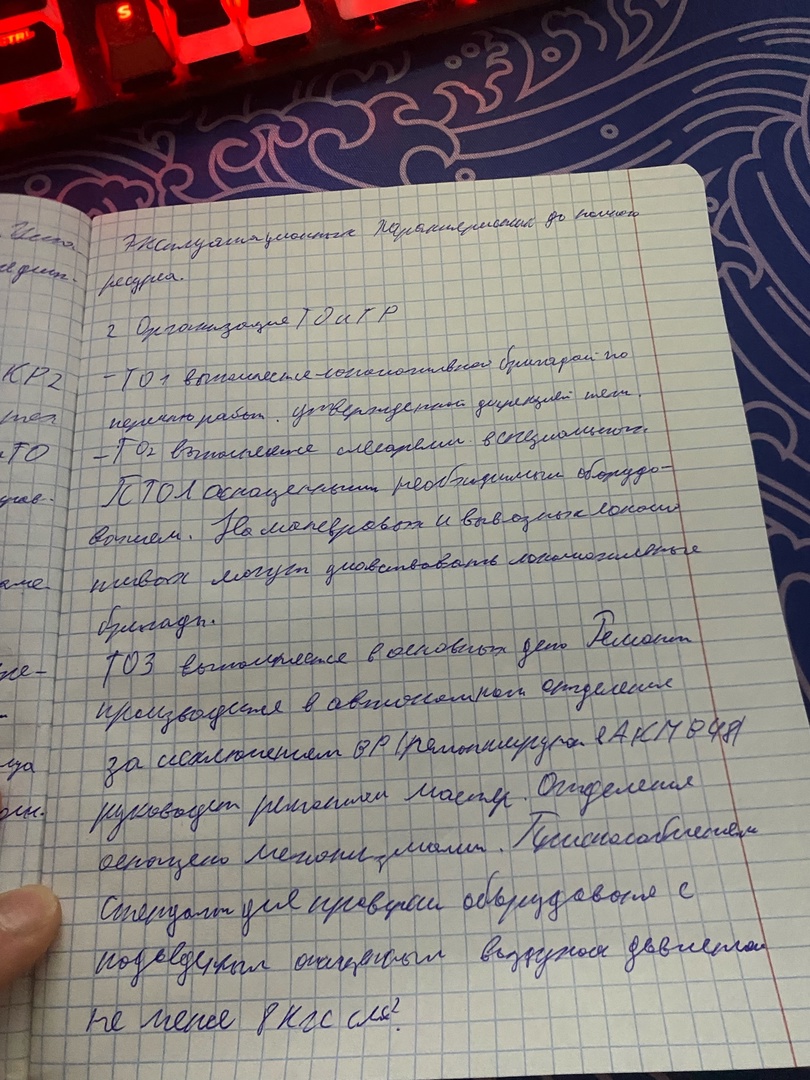 CTRL
S
Эксплуатационных характеристик до полного
ресурса.
2 Организация ТО и ТР
КР2
- ТО1 выполняется локомотивной бригадой по
перечню работ. утвержденной дирекцией тяги.
ТО
- ТО2 выполняется слесарями в специальных
ПТОЛ оснащенными необходимым оборудо-
ванием. На маневровых и вывозных локомо
тивах могут локомотивные
бригады.
ТО3 выполняется в основных депо Ремонт
производится в автономном отделения
за исключением ВР (ремонтируют в АКП ВЧД)
руководит ремонтом мастер. Отделения
оснащено механизмами. Приспособлением
Стендам для проверки оборудования с
подведеным очищенным воздухом давлением
не менее 8 кгс см²